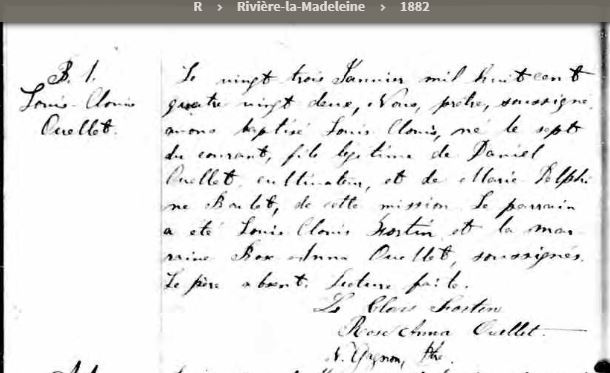 R › Rivière-la-Madeleine › 1882
B. 1.
Louis Clovis
Ouellet.
Le vingt trois Janvier mil huit cent
quatre vingt deux, Nous, prêtre, soussigné,
avons baptisé Louis Clovis, né le sept
du courant, fils légitime de Daniel
Ouellet, cultivateur, et de Marie Delphi
ne Boulet, de cette mission. Le parrain
a été Louis Clovis Fortin et la mar-
raine Rose Anna Ouellet, soussignés.
Le père absent. Lecture faite.
Ls Clovis Fortin
Rose Anna Ouellet.
N. Gagnon, Ptre.